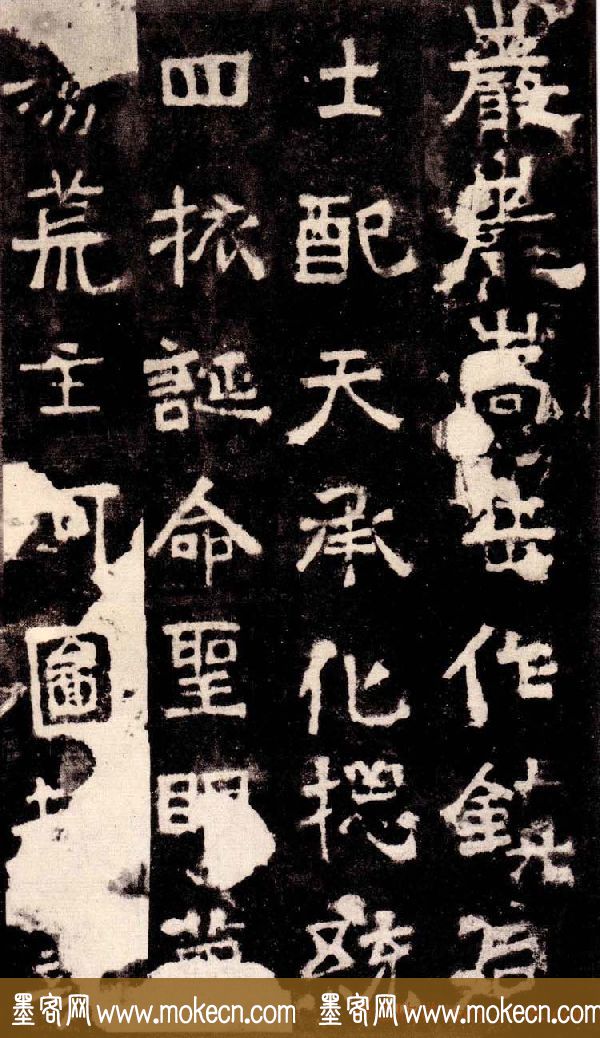 巖巖嵩岳作鎮后
土配天承化揔統
四誕命聖眀
荒主河圖
墨客网 www.mokecn.com 墨客网 www.mokecn.com